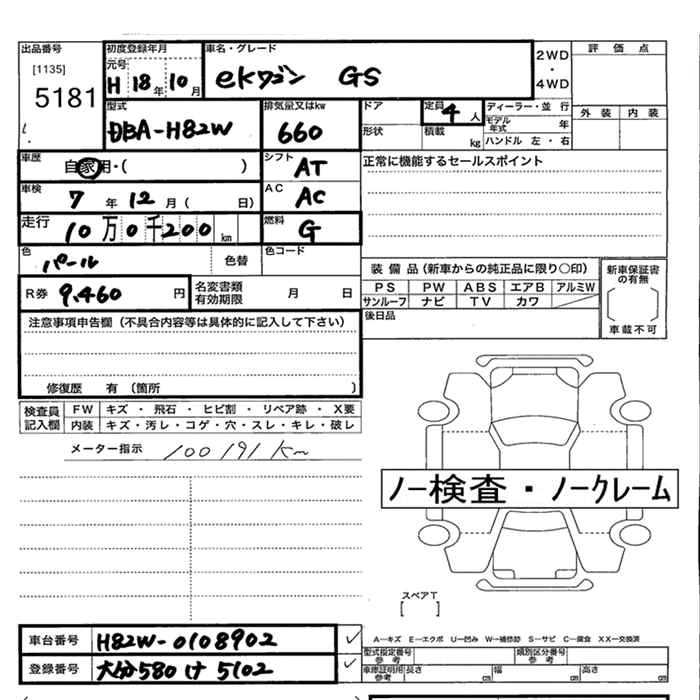 出品番号 初度登録年月 車名・グレード 2WD・4WD 評価点
[1135] 元号
5181 H 18年 10月 eKワゴン GS
型式 排気量又はkw ドア 定員 ディーラー・並行 外装 内装
DBA-H82W 660 4人 モデル年式 年
形状 積載 kg ハンドル 左・右
車歴 自家用・( ) シフト AT 正常に機能するセールスポイント
車検 7年 12月 ( 日) AC AC
走行 10万0千200km 燃料 G
色 パール 色替 色コード
装備品(新車からの純正品に限り○印) 新車保証書の有無
R券 9,460円 名変書類有効期限 月 日
PS PW ABS エアB アルミW
サンルーフ ナビ TV カワ
車載不可
後日品
注意事項申告欄(不具合内容等は具体的に記入して下さい)
修復歴 有(箇所 )
検査員記入欄 FW キズ・飛石・ヒビ割・リペア跡・X要
内装 キズ・汚レ・コゲ・穴・スレ・キレ・破レ
メーター指示 100191km
ノー検査・ノークレーム
スペアT
[ ]
A―キズ E―エクボ U―凹み W―補修跡 S―サビ C―腐食 XX―交換済
車台番号 H82W-0108902
型式指定番号 参考 類別区分番号 参考
登録番号 大分580け5102
車庫証明用 参考 長さ cm 幅 cm 高さ cm